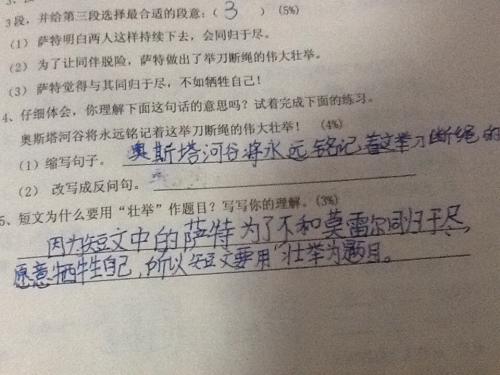 3段，并给第三段选择最合适的段意：（ 3 ）（5%）
（1）萨特明白两人这样持续下去，会同归于尽。
（2）为了让同伴脱险，萨特做出了举刀断绳的伟大壮举。
（3）萨特觉得与其同归于尽，不如牺牲自己！
4、仔细体会，你理解下面这句话的意思吗？试着完成下面的练习。
奥斯塔河谷将永远铭记着这举刀断绳的伟大壮举！（4%）
（1）缩写句子。奥斯塔河谷将永远铭记着这举刀断绳的
（2）改写成反问句。
5、短文为什么要用“壮举”作题目？写写你的理解。（3%）
因为短文中的萨特为了不和莫雷尔同归于尽，
愿意牺牲自己，所以短文要用“壮举为题目。